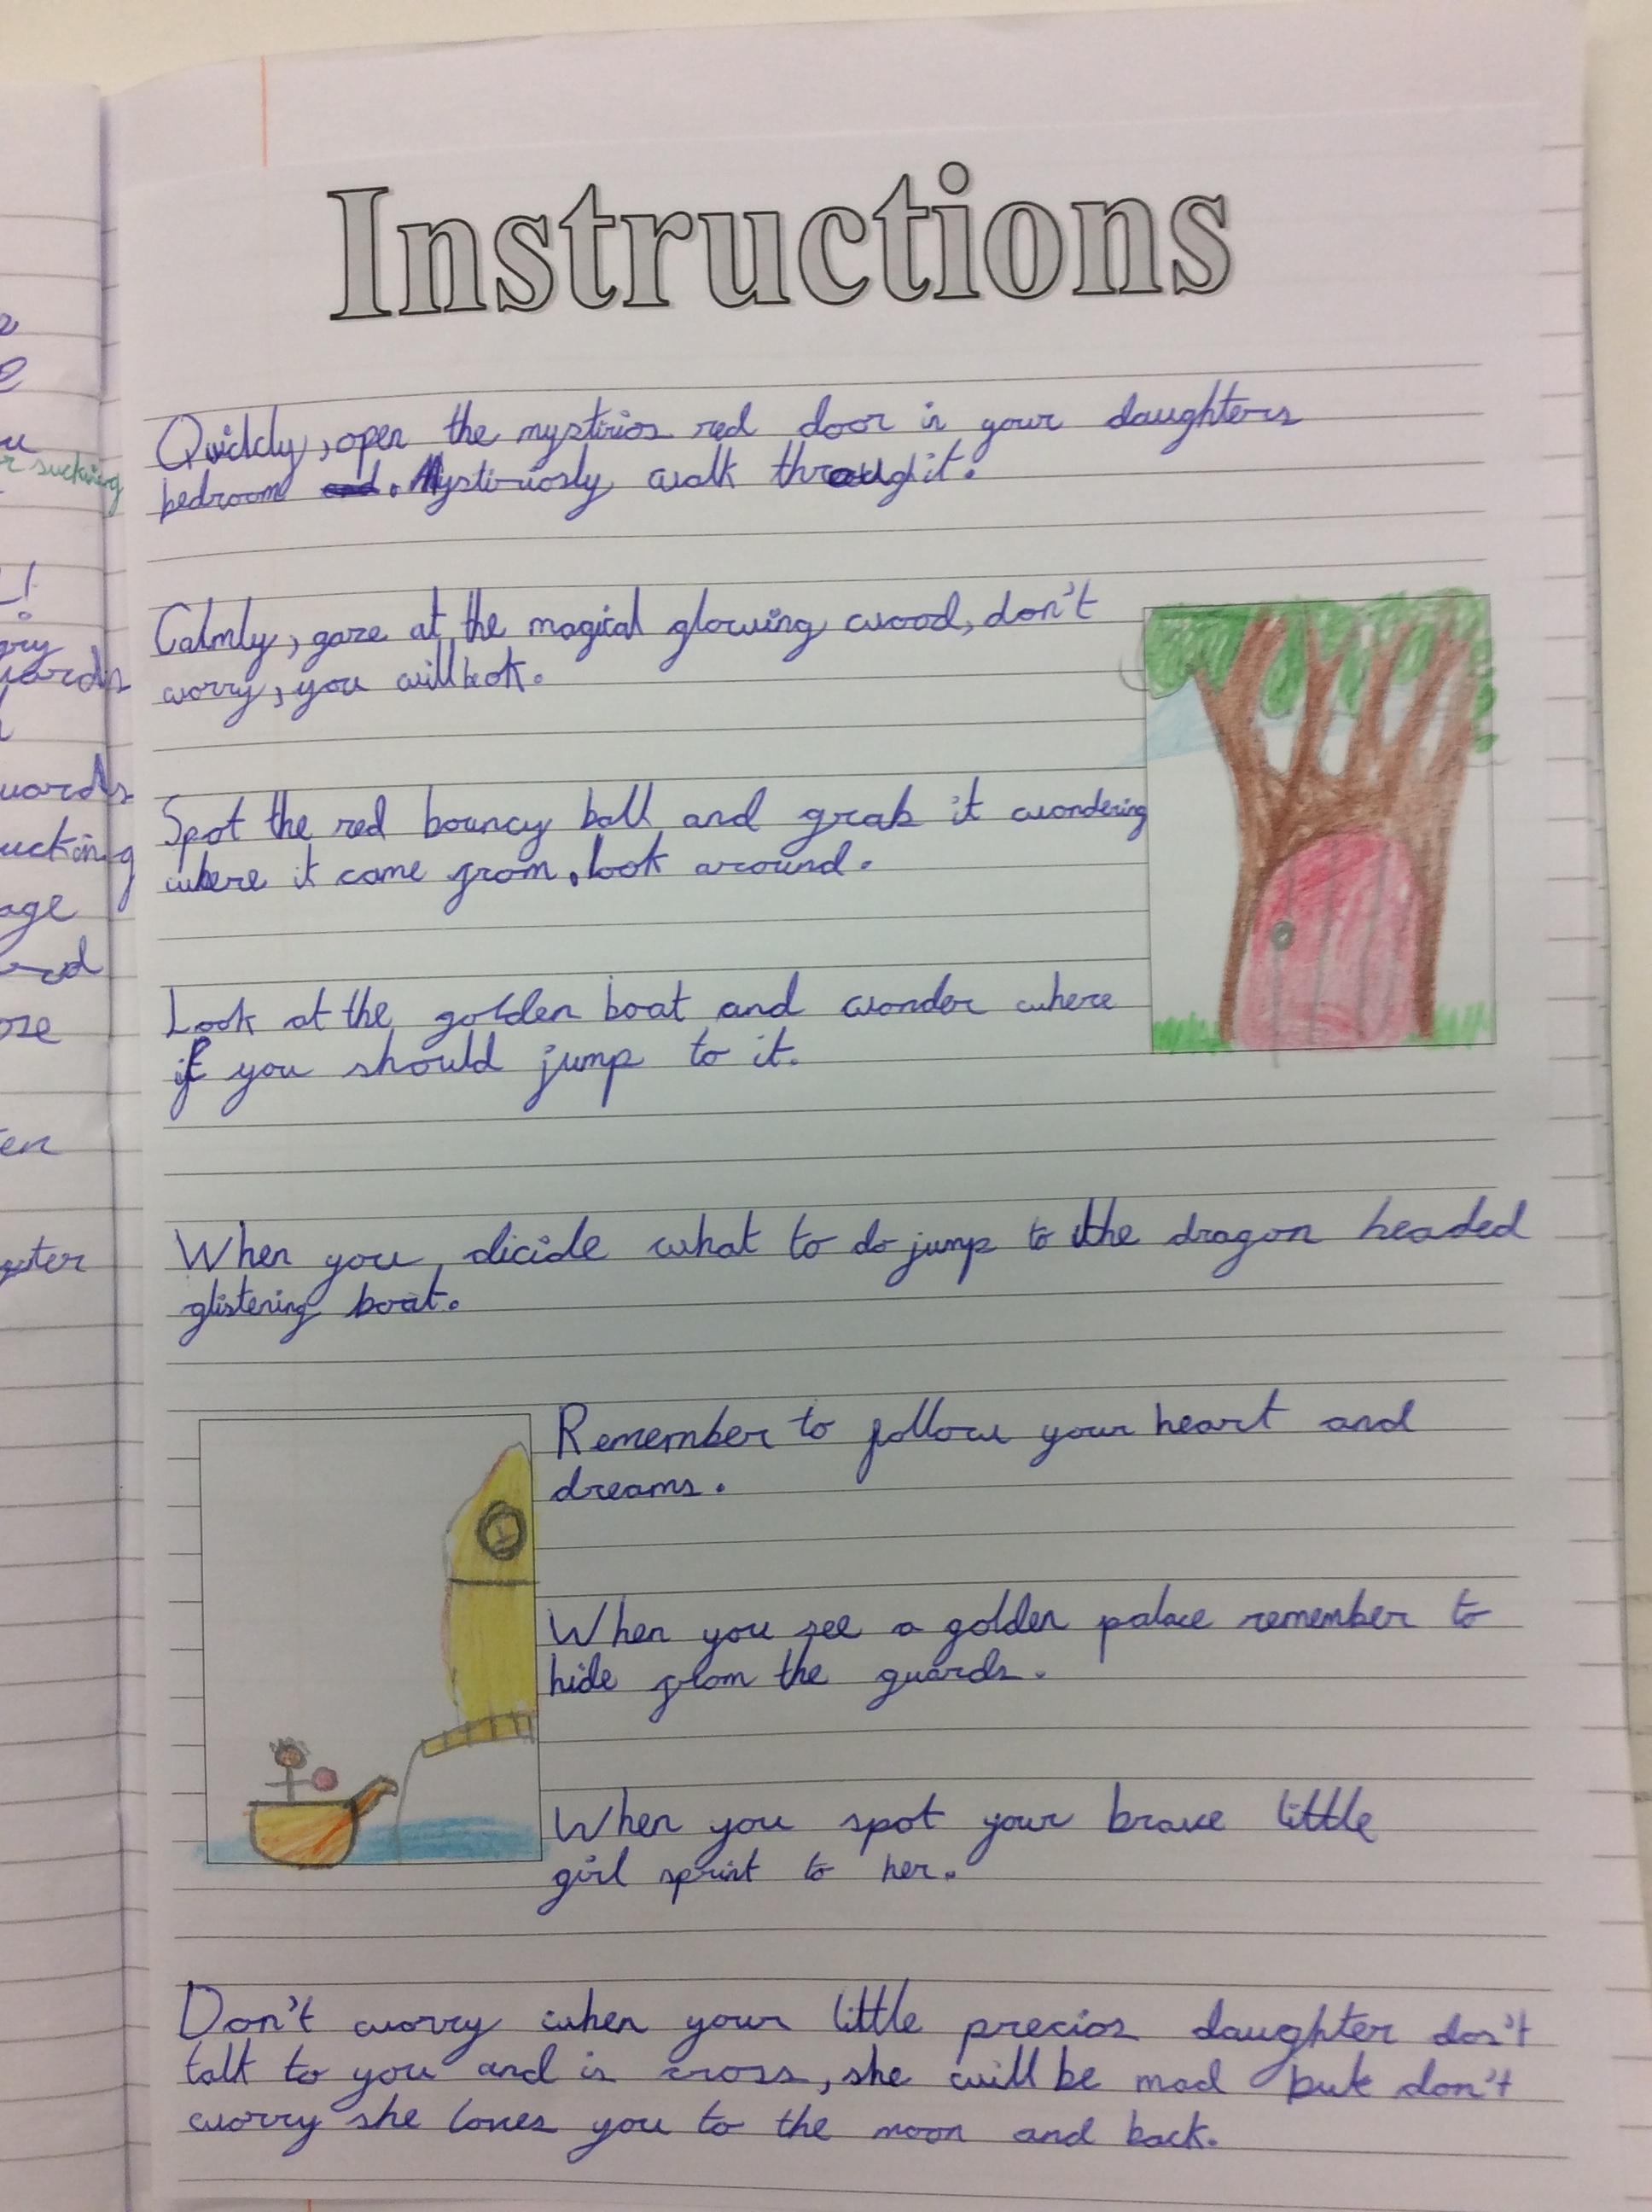 Instructions
Quickly, open the mystirios red door in your daughters
bedroom . Mystiriosly walk through it.
Calmly, gaze at the magical glowing wood, don't
worry, you will be ok.
Spot the red bouncy ball and grab it wondering
where it came from, look around.
Look at the golden boat and wonder where
if you should jump to it.
When you dicide what to do jump to the dragon headed
glistening boat.
Remember to follow your heart and
dreams.
When you see a golden palace remember to
hide from the guards.
When you spot your brave little
girl sprint to her.
Don't worry when your little precios daughter don't
talk to you and is cross, she will be mad but don't
worry she loves you to the moon and back.
r sucking
gry
wards
wards
ucking
age